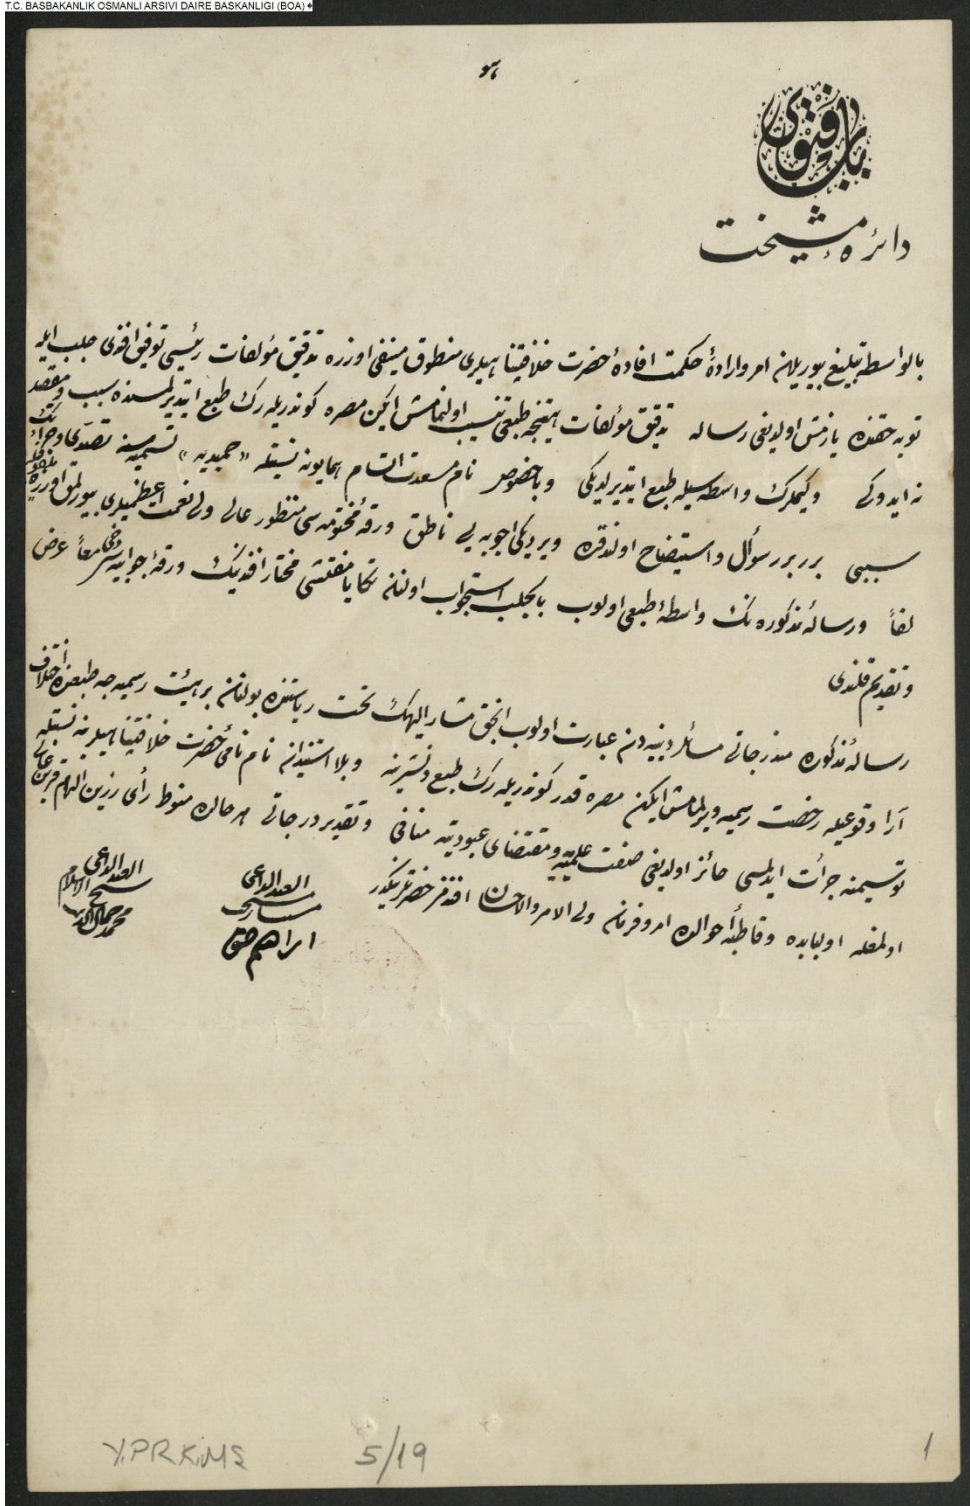 T.C. BASBAKANLIK OSMANLI ARSIVI DAIRE BASKANLIGI (BOA)
هو
باب فتوى
دائرهٔ مشيخت
بالواسطه تبليغ بيوريلان امر و ارادهٔ حكمت افادهٔ حضرت خلافتپناهيلرى منطوق منيفى اوزره تدقيق مؤلفات رئيسى توفيق افندى جلب ايله
توبه حقنده يازمش اولديغى رساله تدقيق مؤلفات هيئتنجه طبعى تنسيب اولنمامش ايكن مصره كوندريله رك طبع ايتديرلمسنده سبب و مقصد
نه ايدوكى و كيملرك واسطه سيله طبع ايتديرلديكى و باخصوص نام مسعدت اتسام همايونه نسبتله «حميديه» تسميه سنه تصدى و جرأتك
سببى برر برر سؤال و استيضاح اولندقده ويرديكى اجوبه يى ناطق ورقهٔ مختومه سى منظور عالى ولى نعمت اعظميلرى بيورلمق اوزره
لفاً و رسالهٔ مذكوره نك واسطهٔ طبعى اولوب بالجلب استجواب اولنان تكايا مفتشى مختار افندينك ورقهٔ جوابيه سى دخى معاً عرض
و تقديم قلندى
رسالهٔ مذكوره مندرجاتى مسائل دينيه دن عبارت اولوب انجق مشار اليهك تحت رياستنده بولنان بر هيئت رسميه جه طبعنده اختلاف
آرا وقوعيله رخصت رسميه ويرلمامش ايكن مصره قدر كوندريله رك طبع و نشرينه و بلا استيذان نام نامئ حضرت خلافتپناهيلرينه نسبتله
توسيمنه جرأت ايدلمسى حائز اولديغى صفت علميه و مقتضاى عبوديته منافى و تقدير درجاتى هر حالده منوط رأى رزين الهام قرين عالى
اولمغله اولبابده و قاطبهٔ احوالده امر و فرمان ولى الامر و الاحسان افندمز حضرتلرينكدر
العبد الداعى
مستشار مشيخت
ابراهيم حقى
العبد الداعى
شيخ الاسلام
محمد جمال الدين
Y.PRK.MŞ
5/19
1